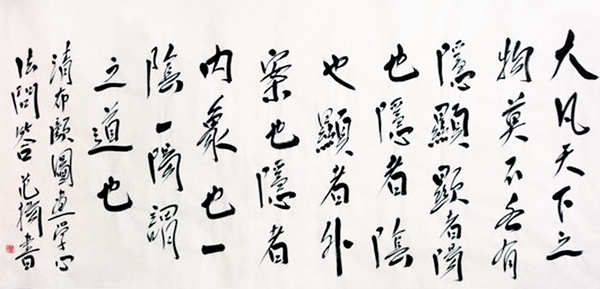 大凡天下之
物莫不各有
隱顯顯者陽
也隱者陰
也顯者外
案也隱者
内象也一
陰一陽謂
之道也
清布顏圖畫学心
法問答 書